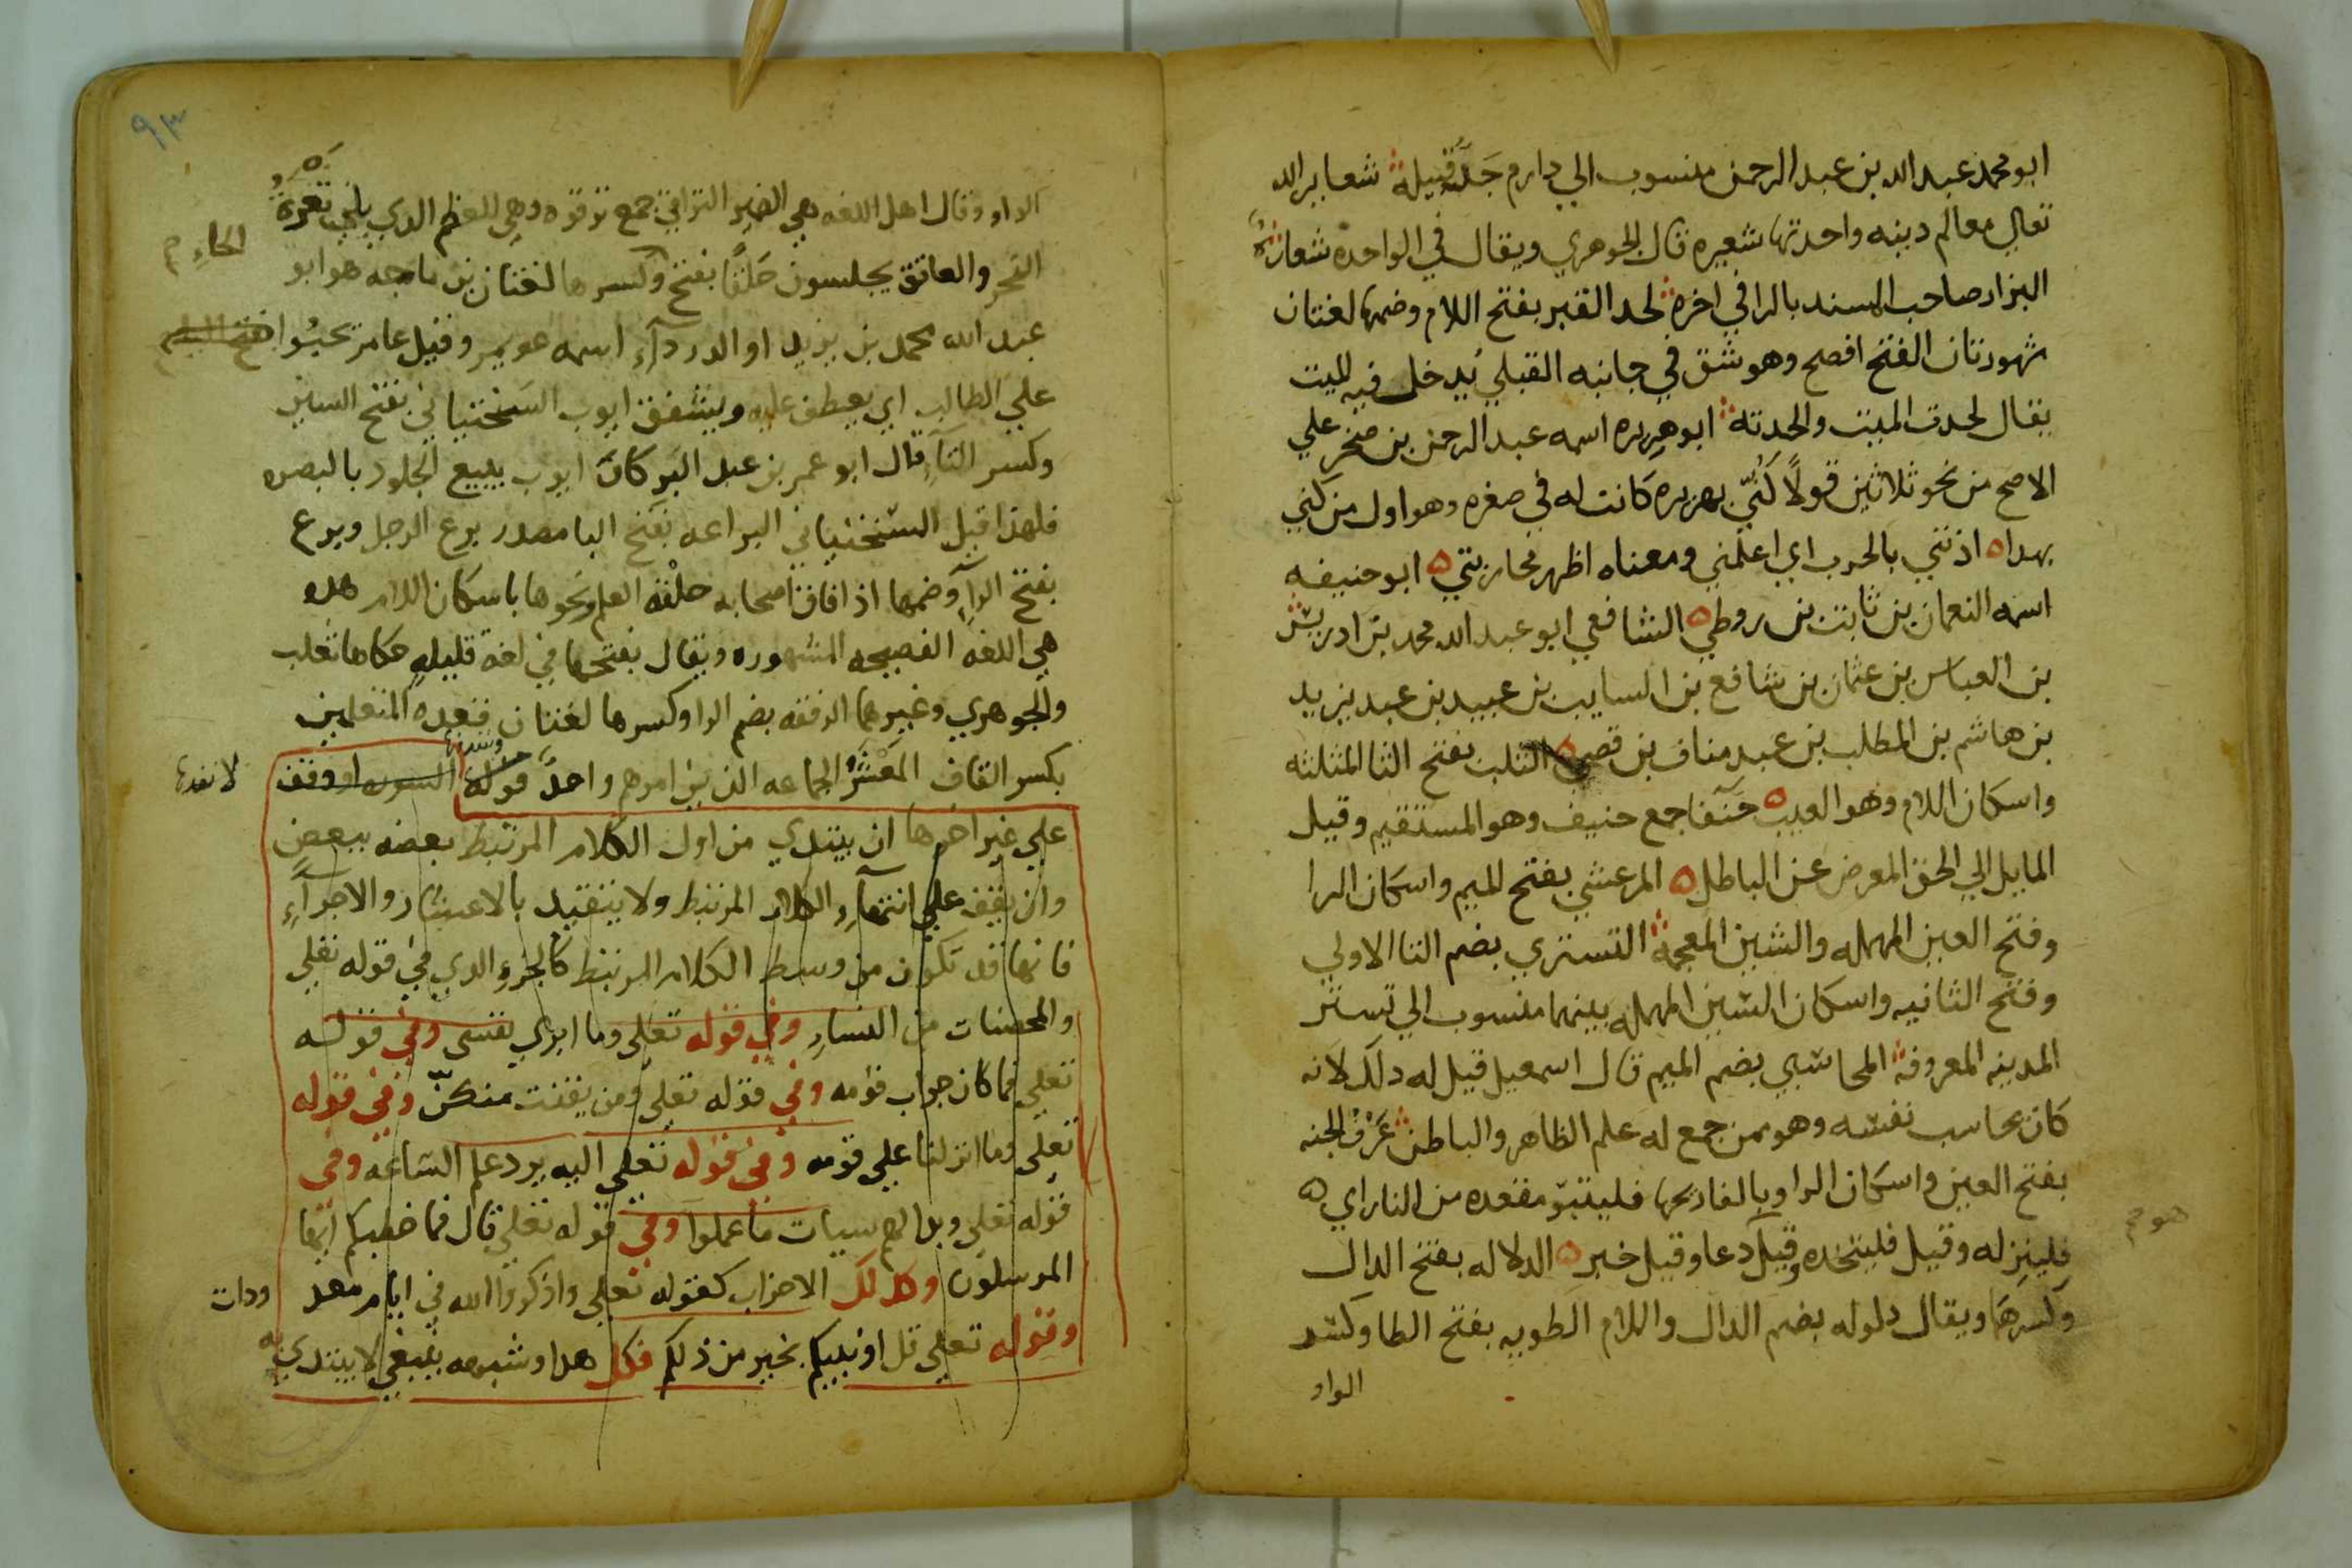 ابو محمد عبد الله بن عبد الرحمن منسوب الي دارم جد قبيلة شعاير الله
تعالي معالم دينه واحدتها شعيره قال الجوهري ويقال في الواحدة شعارة
البزار صاحب المسند بالرا في اخره لحد القبر بفتح اللام وضمها لغتان
مشهورتان الفتح افصح وهو شق في جانبه القبلي يدخل فيه الميت
يقال لحدت الميت والحدته ابو هريره اسمه عبد الرحمن بن صخر علي
الاصح من نحو ثلاثين قولًا كُنّي بهريره كانت له في صغره وهو اول من كني
بهدا ه اذنني بالحرب اي اعلمني ومعناه اظهر محاربتي ه ابو حنيفه
اسمه النعمان بن ثابت بن روطي ه الشافعي ابو عبد الله محمد بن ادريس
بن العباس بن عثمان بن شافع بن السايب بن عبيد بن عبد يزيد
بن هاشم بن المطلب بن عبد مناف بن قصي ه الثلب بفتح الثا المثلثه
واسكان اللام وهو العيب ه حنفا جمع حنيف وهو المستقيم وقيل
المايل الي الحق المعرض عن الباطل ه المرعشي بفتح الميم واسكان الرا
وفتح العين المهمله والشين المعجمة التستري بضم التا الاولي
وفتح الثانيه واسكان السين المهمله بينهما منسوب الي تستر
المدينه المعروفة المحاسبي بضم الميم قال اسمعيل قيل له دلك لانه
كان يحاسب نفسه وهو ممن جمع له علم الظاهر والباطن عَرْفُ الجنه
بفتح العين واسكان الرا وبالفا ريحها فليتبوّ مقعده من النار اي ه
فلينزله وقيل فليتخده وقيل دعا وقيل خبر ه الدلاله بفتح الدال
هو مم
وكسرها ويقال دلوله بضم الدال واللام الطويه بفتح الطا وكسر
الواو
٩٣
الواو وقال اهل اللغه هي الضمير التراقي جمع ترقوه وهي العظم الدي باني ثغرة
النحر والعاتق يجلسون حَلَقًا بفتح وكسرها لغتان بن ماجه هو ابو
الحاءِ م
عبد الله محمد بن يزيد ابو الدرداءِ اسمه عويمر وقيل عامر تحبُوا
علي الطالب اي يعطف عليه ويشفق ايوب السختياني بفتح السين
وكسر التآءِ قال ابو عمر بن عبد البر كان ايوب يبيع الجلود بالبصره
فلهذا قيل السختياني البراعه بفتح البا مصدر برع الرجل وبرع
بفتح الرآءِ وضمها اذا فاق اصحابه حلْقة العلم ونحوها باسكان اللام هده
هي اللغه الفصيحه المشهوره ويقال بفتحها في لغه قليلهٍ حكاها ثعلب
والجوهري وغيرهما الرفقه بضم الرا وكسرها لغتان قعده المتعلمين
بكسر القاف المَعْشَر الجماعه الذين امرهم واحدٌ قوله السوره او وقف
علي غير اخرها ان يبتدي من اول الكلام المرتبط بعضه ببعض
وان يقف علي انتهآءِ الكلام المرتبط ولا يتقيد بالاعشار والاجزآءِ
فانها قد تكون من وسط الكلام المرتبط كالجزءِ الدي في قوله تعلي
والمحصنات من النساءِ وفي قوله تعلي وما ابري نفسي وفي قوله
تعلي فما كان جواب قومه وفي قوله تعلي ومن يقنت منكنّ وفي قوله
تعلي وما انزلنا علي قومه وفي قوله تعلي اليه يرد علم الساعه وفي
قوله تعلي وبدا لهم سيات ما عملوا وفي قوله تعلي قال فما خطبكم ايها
المرسلون وكدلك الاحزاب كقوله تعلي واذكروا الله في ايام معد
ودات
وقوله تعلي قل اونبيكم بخير من ذلكم فكل هدا وشبهه ينبغي لا يبتدي به